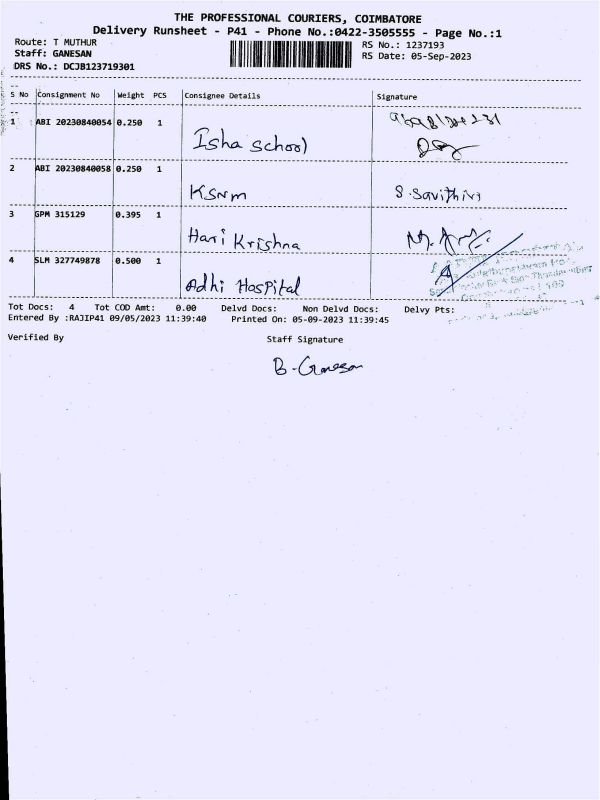 THE PROFESSIONAL COURIERS, COIMBATORE
Delivery Runsheet - P41 - Phone No.:0422-3505555 - Page No.:1
Route: T MUTHUR
RS No.: 1237193
Staff: GANESAN
RS Date: 05-Sep-2023
DRS No.: DCJB123719301
S No Consignment No Weight PCS Consignee Details Signature
1 ABI 20230840054 0.250 1
Isha School
2 ABI 20230840058 0.250 1
KSNM S. Savithiri
3 GPM 315129 0.395 1
Hari Krishna
4 SLM 327749878 0.500 1
Adhi Hospital
Tot Docs: 4 Tot COD Amt: 0.00 Delvd Docs: Non Delvd Docs: Delvy Pts:
Entered By :RAJIP41 09/05/2023 11:39:40 Printed On: 05-09-2023 11:39:45
Verified By Staff Signature
B. Ganesan